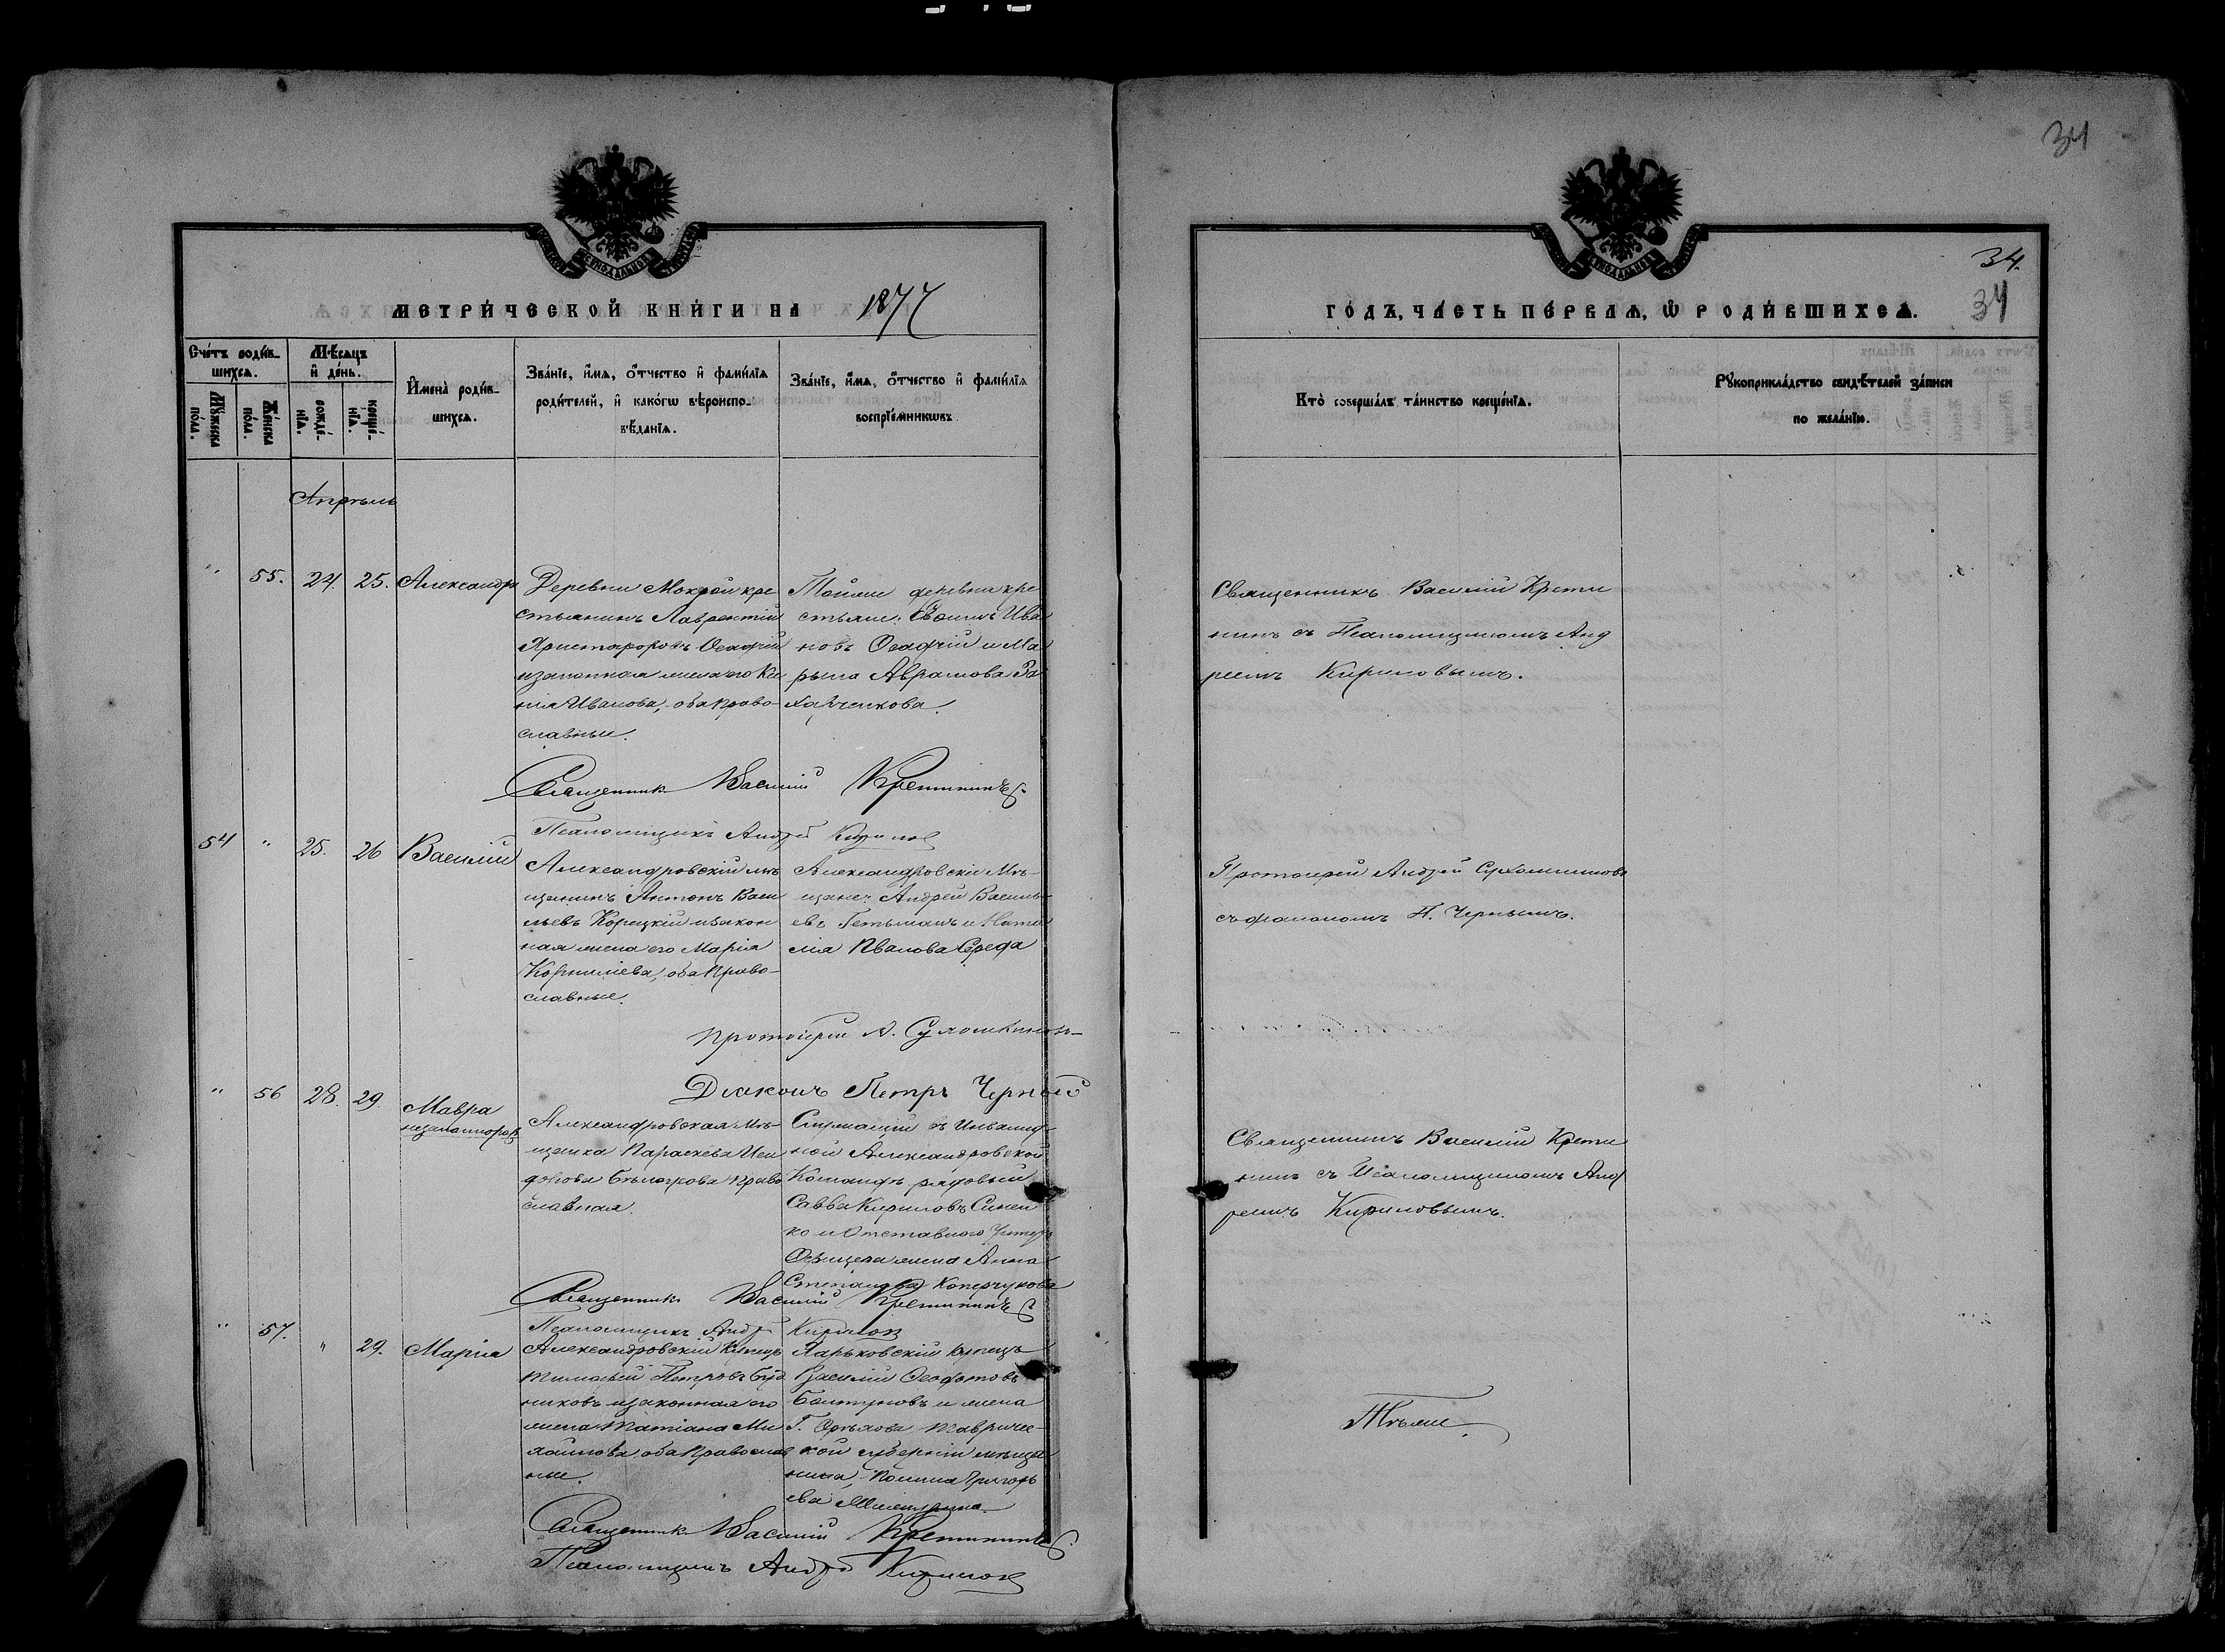 34
МЕТРИ́ЧЕСКОЙ КНИ́ГИ НА 1877
Сче́тъ роди́в-
шихся.
Мѣ́сяцъ
и҆ де́нь.
Му́жеска
по́ла.
Же́нска
по́ла.
рожде́-
нїѧ.
креще́-
нїѧ.
И҆мена̀ роди́в-
шихсѧ.
Зва́нїе, и҆́мѧ, ѻ҆́тчество и҆ фами́лїѧ
роди́телей, и҆ како́гѡ вѣроиспо-
вѣ́данїѧ.
Зва́нїе, и҆́мѧ, ѻ҆́тчество и҆ фами́лїѧ
воспрїе́мникѡвъ.
Апрѣль
" 55. 24. 25. Александра
Деревни Мокрой кре
стьянинъ Лаврентій
Христофоровъ Осадчій
изаконная жена его Ксе
нія Иванова, оба право-
славные.
Тойже деревни кре
стьяне: Ива
новъ Осадчій и Ма
рьяна Аврамова За
харченкова.
Священникъ Василій Кретининъ
Псаломщикъ Андрей Кириловъ
54 " 25. 26 Василій
Александровскій мѣ
щанинъ Антонъ Васи
льевъ Корецкій изакон
ная жена его Марія
Корнилиева, оба право-
славные.
Александровскіе Мѣ-
щане: Андрей Василь-
евъ Гетьманъ и Ната
лія Иванова Середа
Протоіерей А. Сухомлиновъ
Діаконъ Петръ Черный
" 56 28. 29. Мавра
незаконнорож
Александровская Мѣ-
щанка Параскева Иси
дорова право
славная.
Служащій въ Инвалид-
ной Александровской
Командѣ рядовый
Савва Кириловъ Синен
ко и Отставного Унтеръ
Офицера жена Анна
Степанова
Священникъ Василій Кретининъ
Псаломщикъ Андрей Кириловъ
" 57. " 29. Марія
Александровскій Купецъ
Тимофей Петровъ
никовъ изаконная его
жена Татіана Ми
хайлова, оба православ
ные.
Харьковскій купецъ
Василій Феодотовъ
и жена
Г. Орѣхова Тавричес-
кой губерніи мѣща
нина, Григорь
ева
Священникъ Василій Кретининъ
Псаломщикъ Андрей Кириловъ
ГО́ДЪ, ЧА́СТЬ ПЕ́РВАѦ, Ѡ҆ РОДИ́ВШИХСѦ.
34.
34
Кто̀ соверша́лъ та́инство креще́нїѧ.
Рꙋкоприкла́дство свидѣ́телей за́писи
по жела́нїю.
Священникъ Василій Крети
нинъ съ Псаломщикомъ Анд
реемъ Кириловымъ.
Протоіерей Андрей Сухомлиновъ
съ діакономъ П. Чернымъ.
Священникъ Василій Крети
нинъ съ Псаломщикомъ Анд
реемъ Кириловымъ.
Тѣже.